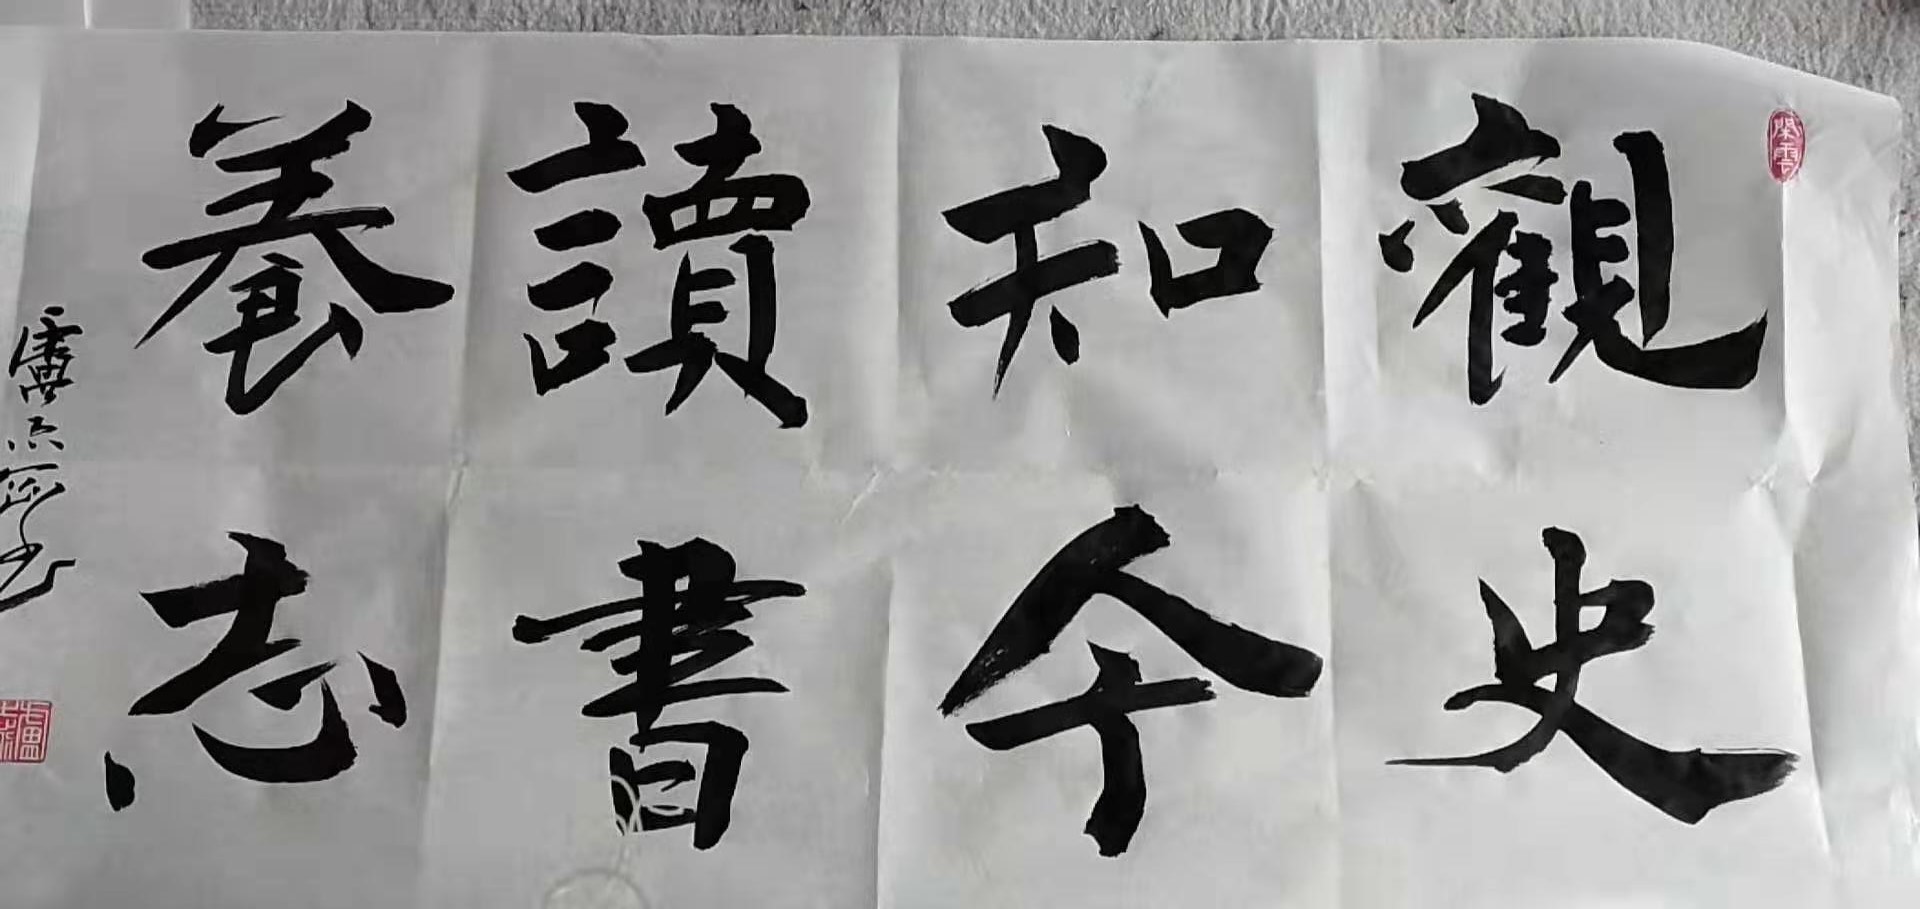 觀史
知今
讀書
養志